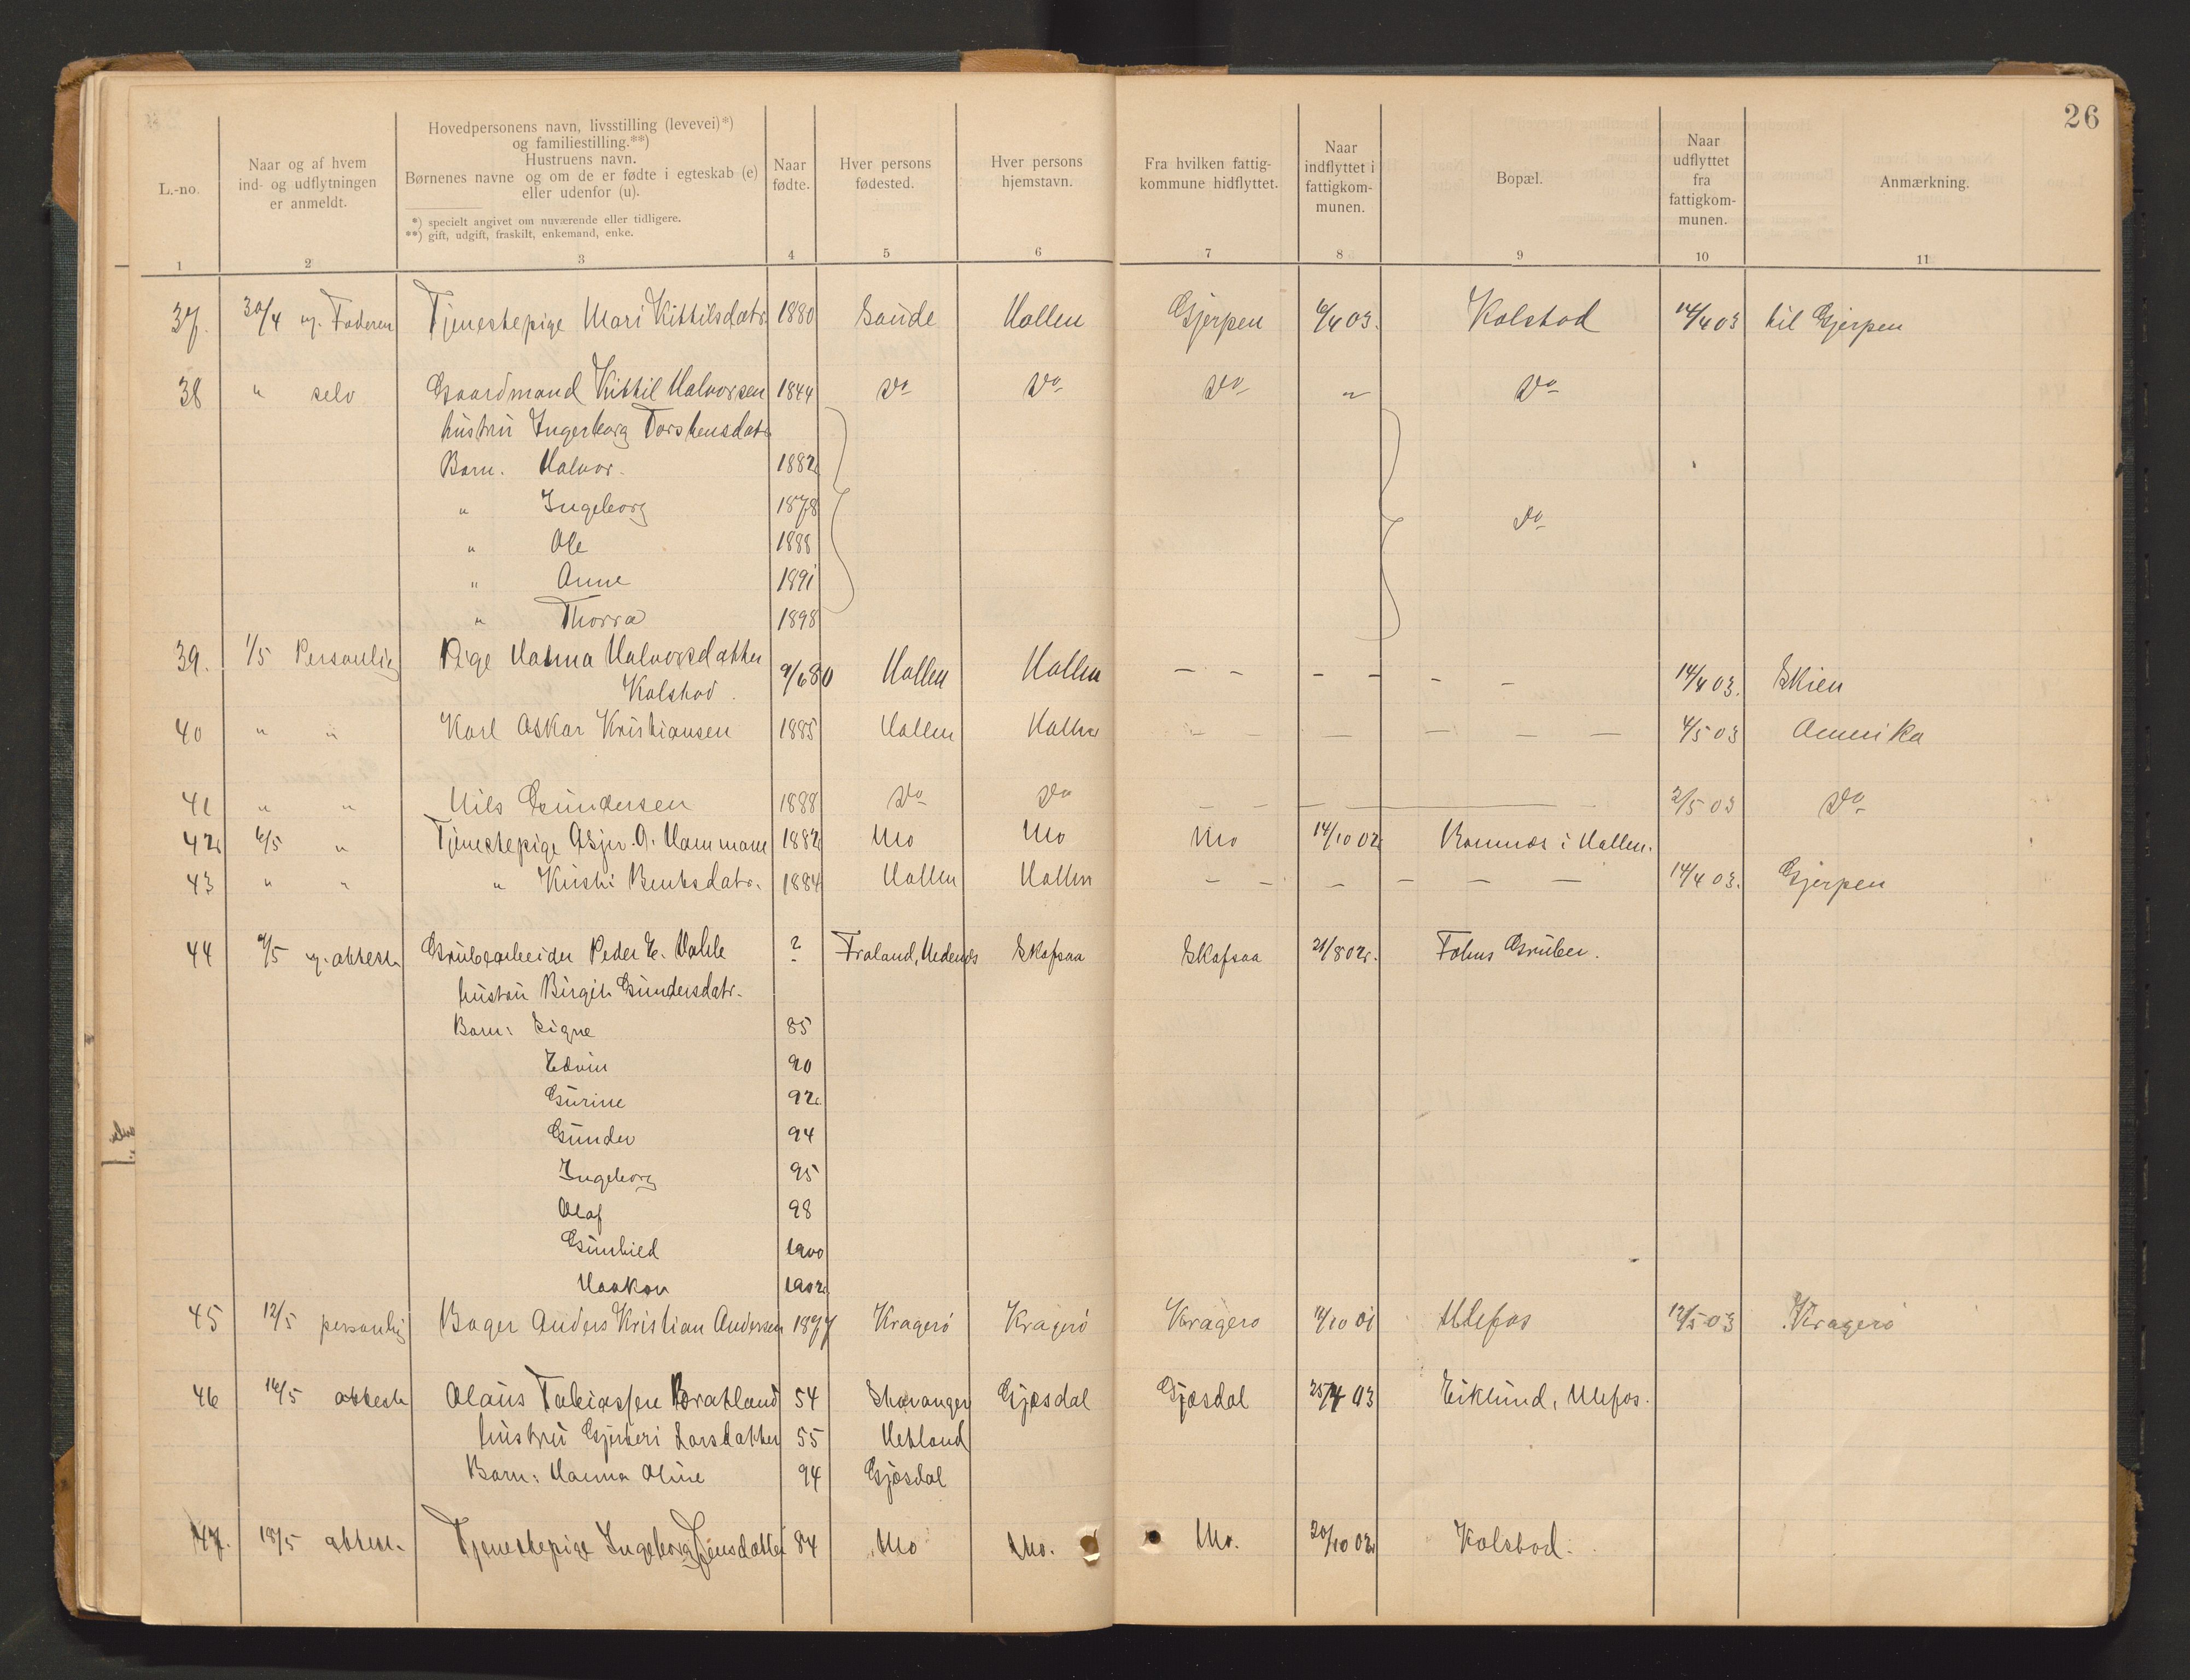 26
L.-no.
Naar og af hvem
ind- og udflytningen
er anmeldt.
Hovedpersonens navn, livsstilling (levevei)*)
og familiestilling.**)
Hustruens navn.
Børnenes navne og om de er fødte i egteskab (e)
eller udenfor (u).
*) specielt angivet om nuværende eller tidligere.
**) gift, udgift, fraskilt, enkemand, enke.
Naar
fødte.
Hver persons
fødested.
Hver persons
hjemstavn.
Fra hvilken fattig-
kommune hidflyttet.
Naar
indflyttet i
fattigkom-
munen.
Bopæl.
Naar
udflyttet
fra
fattigkom-
munen.
Anmærkning.
1 2 3 4 5 6 7 8 9 10 11
37. 30/4 v. Faderen Tjenestepige Mari Kittilsdatr. 1880 Saude Hollen Gjerpen /4 03. Kolstad 14/4 03 til Gjerpen
38 " selv Gaardmand Kittil Halvorsen 1844 Do Do Do " Do
hustru Ingerborg Torstensdatr
Barn. Halvor. 1882
" Ingeborg 1878 Do
" Ole 1888
" Anne 1891
" Thorra 1898
39. 1/5 Personlig Pige Hanna Halvorsdatter 9/6 80 Hollen Hollen – – – – – – 14/4 03. Skien
Kolstad.
40 " " Karl Oskar Kristiansen 1885 Hollen Hollen – – – – – – 4/5 03 Amerika
41 " " Nils Gundersen 1888 Do Do – – – 2/5 03 Do
42 6/5 " Tjenestepige Asjer. O. Hommom 1882 Mo Mo Mo 14/10 02 Romnes i Hollen.
43 " " " Kirsti Bentsdatr. 1884 Hollen Hollen – – – – – – 14/4 03. Gjerpen
44 9/5 v. attest. Grubearbeider Peder E. ? Froland, Nedenes Skafsaa Skafsaa 21/8 02. Fehns Gruber.
hustru Birgit Gundersdatr.
Barn: Signe 85
Edvin 90
Gurine 92
Gunder 94
Ingeborg 95
Olaf 98
Gunhild 1900
Haakon 1902
45 12/5 personlig Bager Anders Kristian Andersen 1877 Kragerø Kragerø Kragerø /10 01 Ulefos 12/5 03 Kragerø
46 16/5 attest Olaus Tobiassen Bratland 54 Stavanger Gjæsdal Gjæsdal 25/4 03 Eiklund, Ulefos.
hustru Gjerteri Larsdatter 55 Hetland
Barn: Hanna Oline 94 Gjæsdal
47. 18/5 attest. Tjenestepige Ingeborg Jensdatter 84 Mo Mo. Mo. 20/10 02 Kolstad.